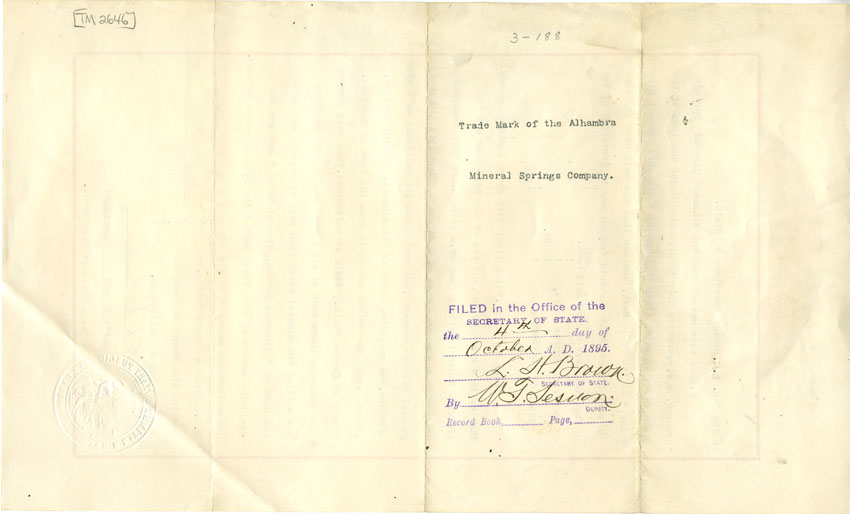 [TM 2646]
3-188
Trade Mark of the Alhambra
Mineral Springs Company.
FILED in the Office of the
SECRETARY OF STATE.
the 4th day of
October A. D. 1895.
L. H. Brown.
SECRETARY OF STATE.
By W. T. Sesnon:
DEPUTY.
Record Book, Page,